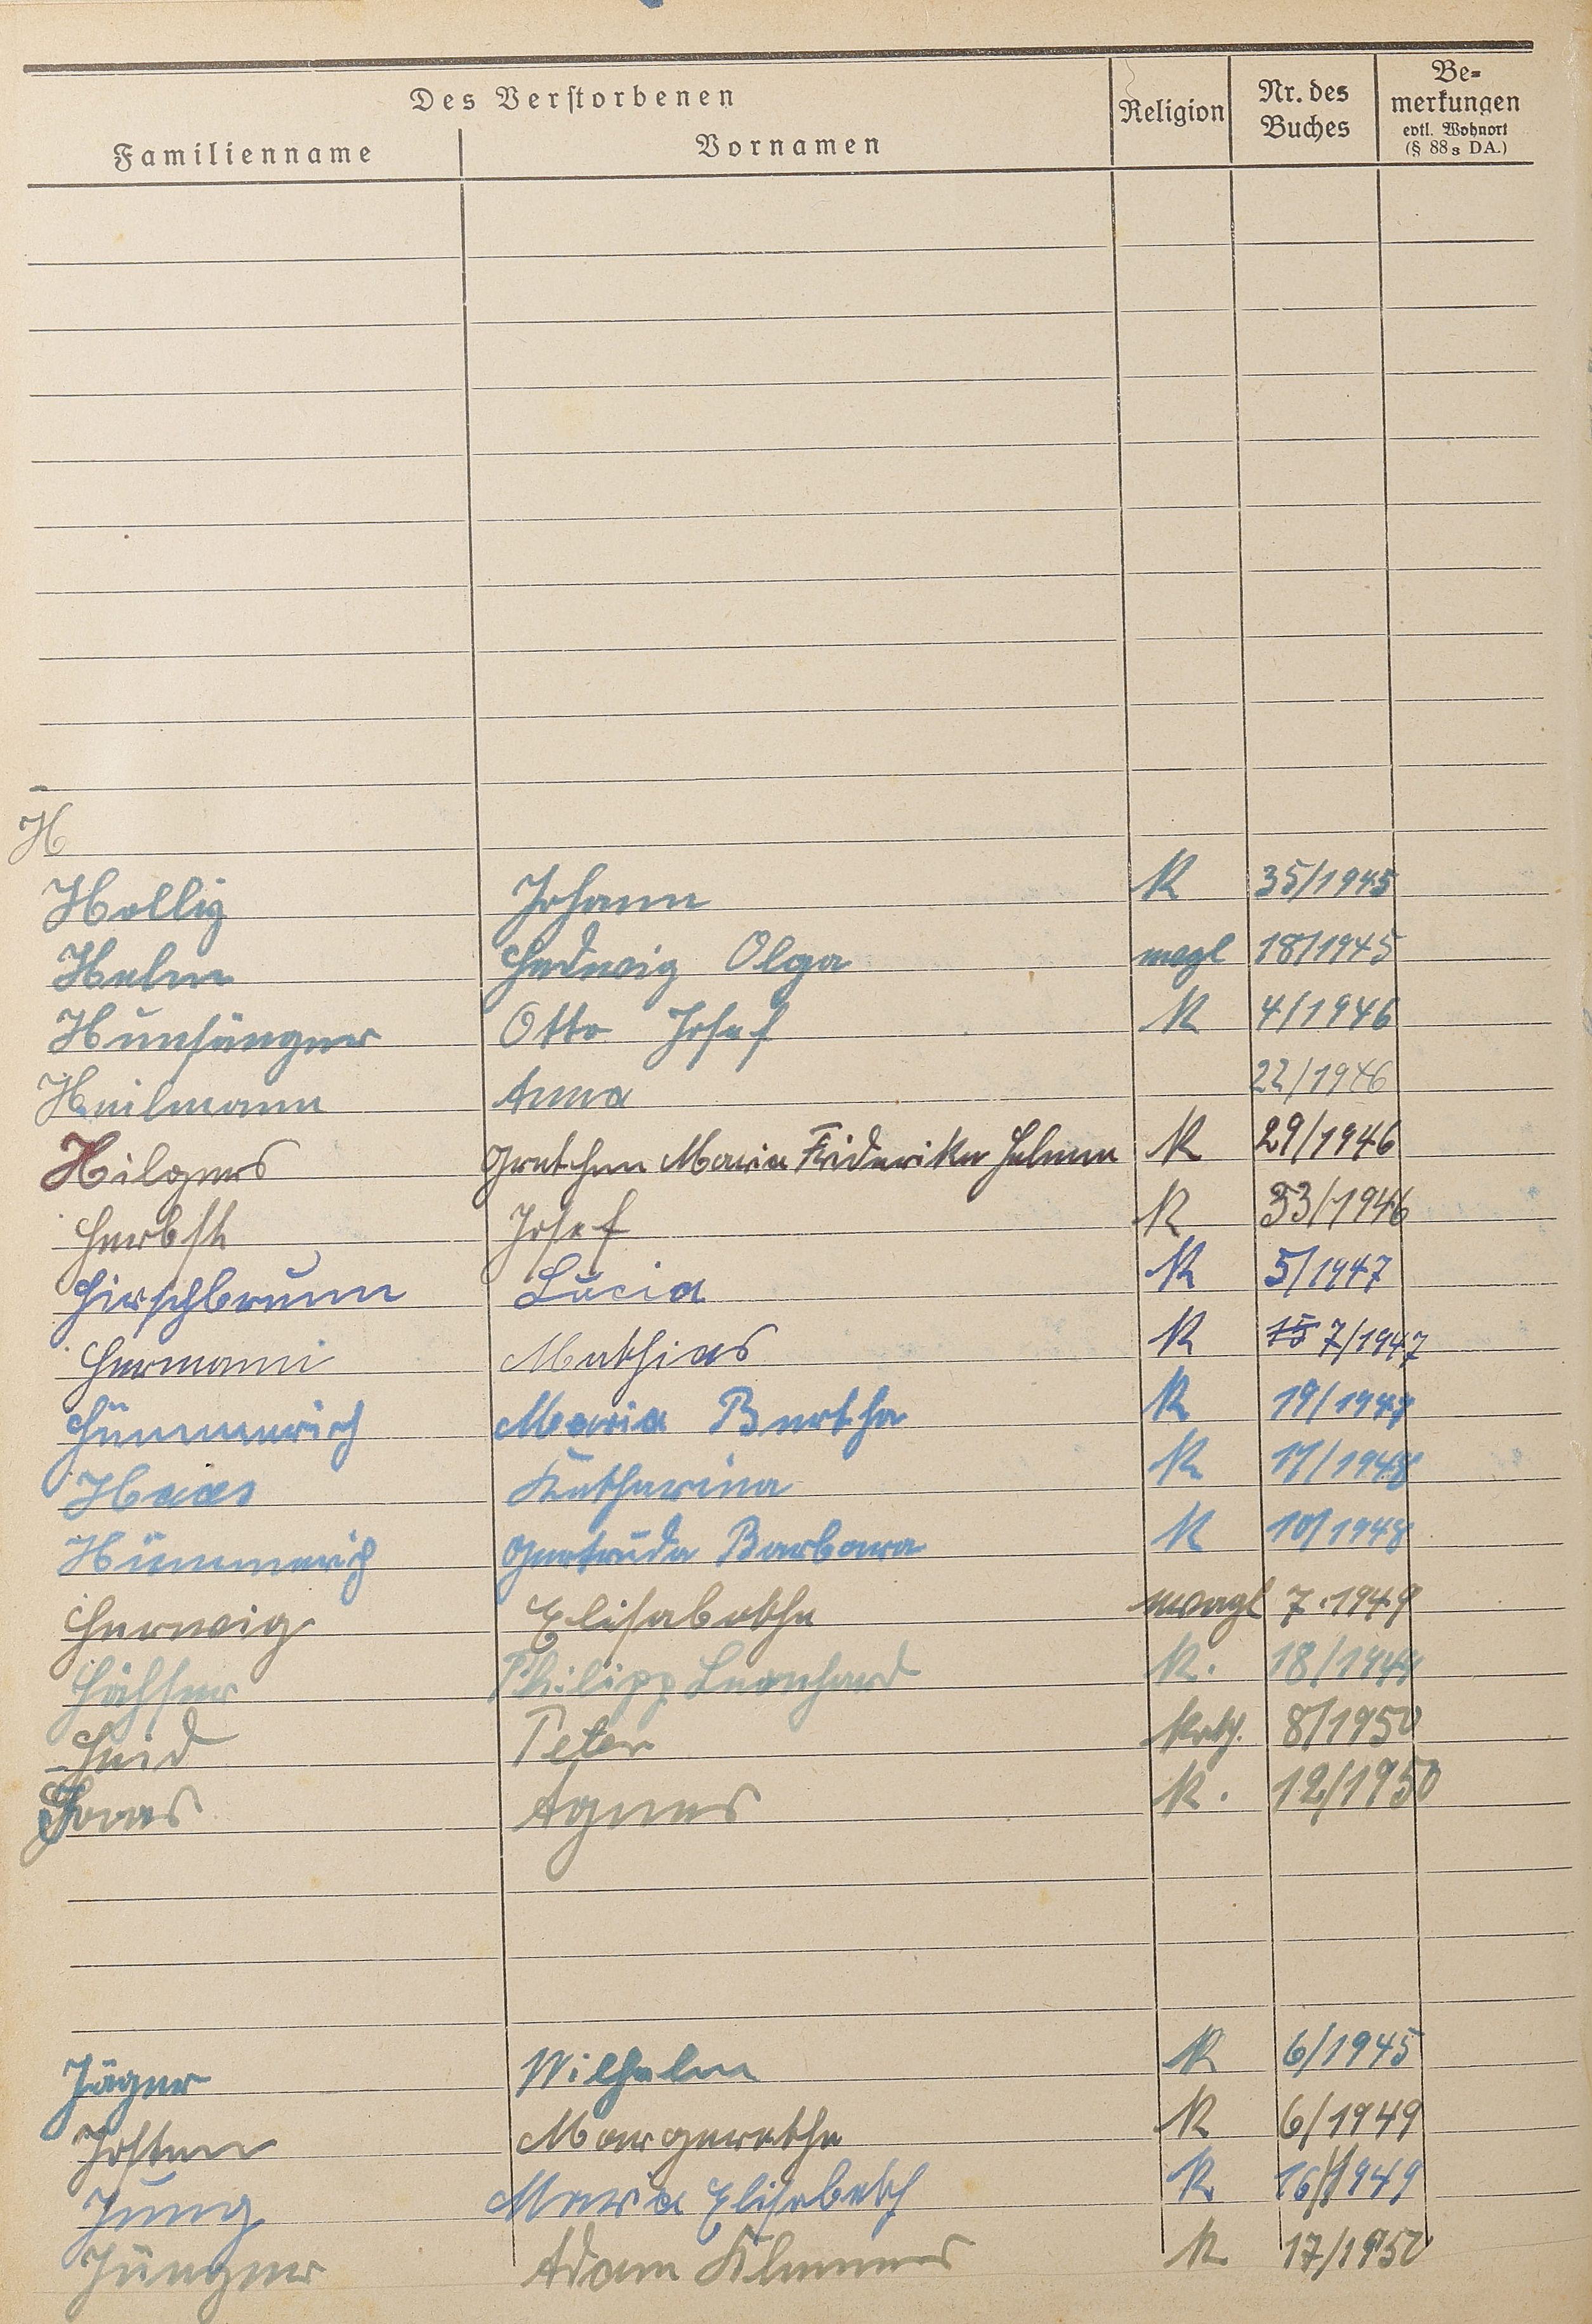 Des Verstorbenen
Familienname Vornamen Religion Nr. des Buches Bemerkungen evtl. Wohnort (§ 88 s DA.)
H
Hollig Johann K 35/1945
Helm Hedwig Olga evagl 18/1945
Hunsänger Otto Josef K 4/1946
Heilmann Anna 22/1946
Hilgers Gretchen Maria Friderike Helene K 29/1946
Herbst Josef K 33/1946
Hirschbrunn Lucia K 5/1947
Hermann Mathias K 7/1947
Hümmerich Maria Bertha K 19/1948
Haas Katharina K 17/1948
Hümmerich Gertruda Barbara K 10/1948
Herwig Elisabethe evagl 7.1949
Philipp Leonhard K. 18/1949
Heid Peter Kath. 8/1950
Agnes K. 12/1950
Jäger Wilhelm K 6/1945
Josten Margarethe K 6/1949
Jung Maria Elisabeth K 16/1949
Jünger Adam Klemens K 17/1950